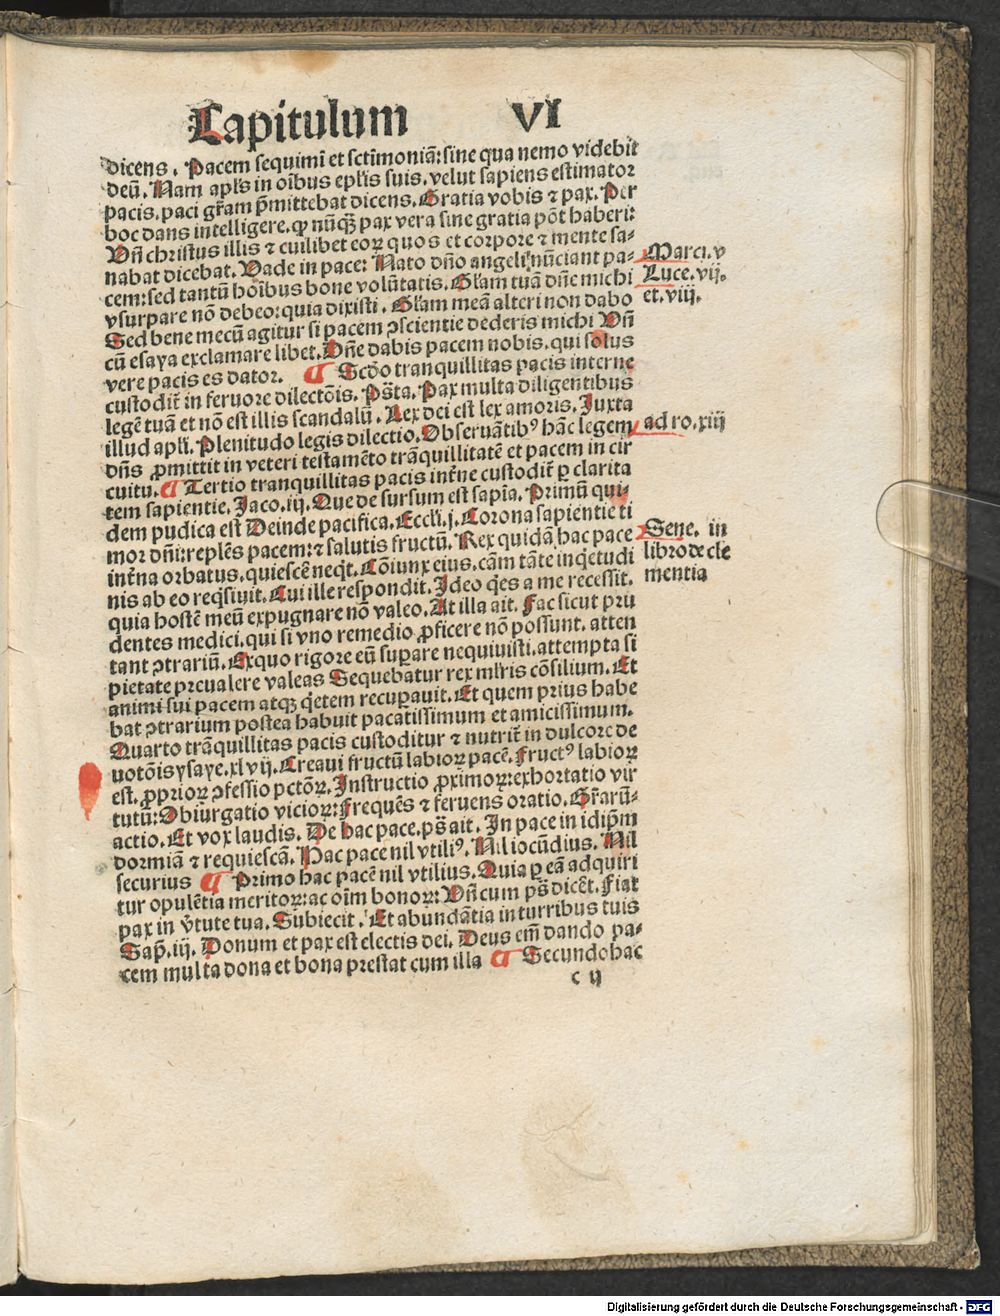 Capitulum VI
dicens. Pacem sequimī et sctīmoniā: sine qua nemo videbit
deū. Nam apl's in oībus epl'is suis. velut sapiens estimator
pacis. paci gr̄am p̄mittebat dicens. Gratia vobis ⁊ pax. Per
hoc dans intelligere. ꝙ nūqꝫ pax vera sine gratia pōt haberi:
Vn̄ christus illis ⁊ cuilibet eoꝝ quos et corpore ⁊ mente sa-
nabat dicebat. Vade in pace: Nato dn̄o angeli nūciant pa-
cem: sed tantū hoībus bone volūtatis. Gl'am tuā dn̄e michi
vsurpare nō debeo: quia dixisti. Gl'am meā alteri non dabo
Sed bene mecū agitur si pacem ꝯscientie dederis michi Vn̄
cū esaya exclamare libet. Dn̄e dabis pacem nobis. qui solus
vere pacis es dator. ¶ Scd̄o tranquillitas pacis interne
custodit̄ in feruore dilectōis. Ps̄ta. Pax multa diligentibus
legē tuā et nō est illis scandalū. Lex dei est lex amoris. Juxta
illud apl'i. Plenitudo legis dilectio. Obseruātibꝰ hāc legem
dn̄s ꝓmittit in veteri testamēto trāquillitatē et pacem in cir
cuitu. ¶ Tertio tranquillitas pacis int̄ne custodit̄ ꝑ clarita
tem sapientie. Jaco. iij. Que de sursum est sapīa. Primū qui-
dem pudica est Deinde pacifica. Eccl'i. j. Corona sapientie ti
mor dn̄i: replēs pacem: ⁊ salutis fructū. Rex quidā hac pace
int̄na orbatus. quiescē neqt̄. Cōiunx eius. cām tāte inq̄etudi
nis ab eo reqs̄iuit. Cui ille respondit. Ideo q̄es a me recessit.
quia hostē meū expugnare nō valeo. At illa ait. Fac sicut pru
dentes medici. qui si vno remedio ꝓficere nō possunt. atten
tant ꝯtrariū. Exquo rigore eū suꝑare nequiuisti. attempta si
pietate preualere valeas Sequebatur rex ml'ris cōsilium. Et
animi sui pacem atqꝫ q̄etem recuꝑauit. Et quem prius habe
bat ꝯtrarium postea habuit pacatissimum et amicissimum.
Quarto trāquillitas pacis custoditur ⁊ nutrit̄ in dulcore de
uotōis ysaye. xlvij. Creaui fructū labioꝝ pacē. Fructꝰ labioꝝ
est. ꝓprioꝝ ꝯfessio pctōꝝ. Instructio ꝓximoꝝ: exhortatio vir
tutū: Obiurgatio vicioꝝ: Frequēs ⁊ feruens oratio. Gr̄arū-
actio. Et vox laudis. De hac pace. ps̄ ait. In pace in idip̄m
dormiā ⁊ requiescā. Hac pace nil vtiliꝰ. Nil iocūdius. Nil
securius ¶ Primo hac pacē nil vtilius. Quia ꝑ eā adquiri
tur opulētia meritoꝝ: ac oīm bonoꝝ: Vn̄ cum ps̄ dicēt. Fiat
pax in v̄tute tua. Subiecit. Et abundātia in turribus tuis
Sap̄. iij. Donum et pax est electis dei. Deus em̄ dando pa-
cem multa dona et bona prestat cum illa ¶ Secundo hac
c ij
Marci. v
Luce. vij.
et. viij.
ad ro. xiij
Sene. in
libro de cle
mentia
Digitalisierung gefördert durch die Deutsche Forschungsgemeinschaft - DFG